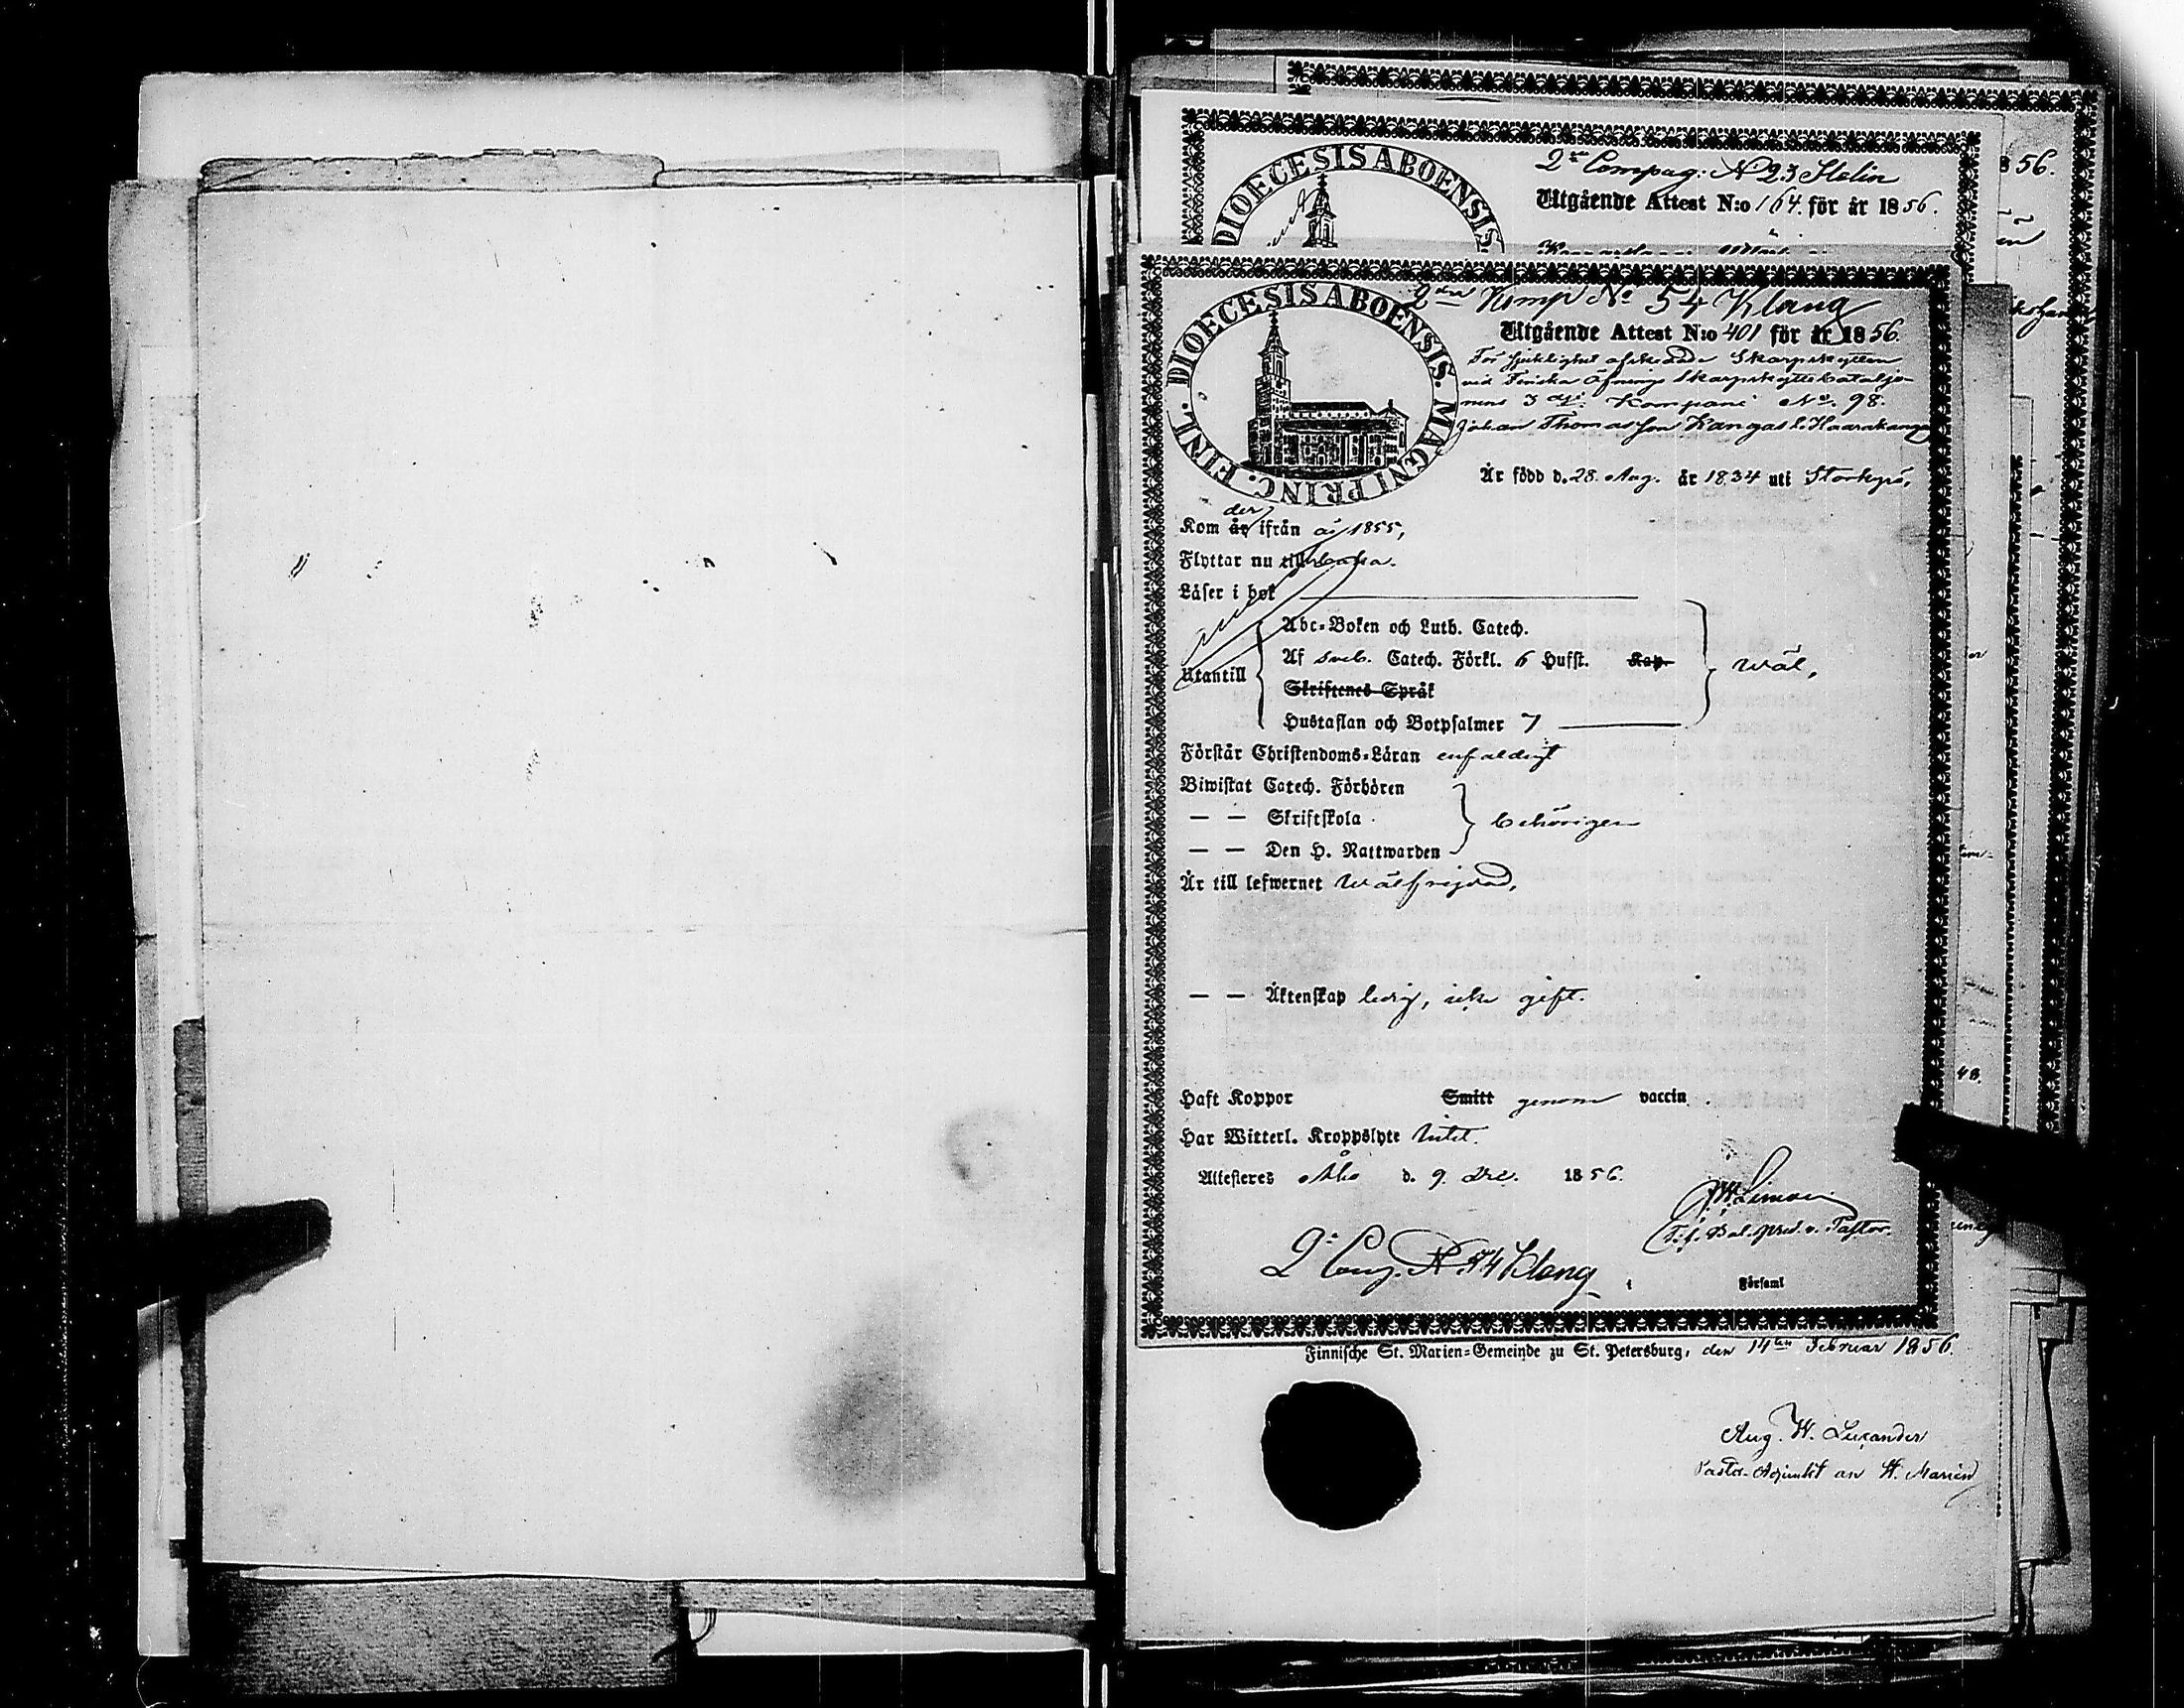 56.
2:a Compag: N 23 Helin
Utgående Attest N:o 164. för år 1856.
DIOECESIS ABOENSIS.
2dra Komp No 54 Klang
Utgående Attest N:o 401 för år 1856.
DIOECESIS ABOENSIS. MAGNI PRINC. FINL.
För sjuklighet afskedade Skarpskytten
vid Finska Öfnings Skarpskyttebataljo-
nens 3dje Kompani No. 98.
Johan Thomasson Kangas l. Haarakangas
Är född d. 28. Aug. år 1834 uti Storkyrö,
der
Kom år ifrån år 1855,
Flyttar nu tillbaka.
Läser i bok
Abc-Boken och Luth. Catech.
Af sveb. Catech. Förkl. 6 Hufst. Kap. wäl,
Utantill
Skriftenes Språk
Hustaflan och Botpsalmer 7
Förstår Christendoms-Läran enfaldigt
Biwistat Catech. Förhören
— — Skriftskola behörigen
— — Den H. Nattwarden
Är till lefwernet wälfrejdad,
— — Äktenskap ledig, icke gift.
Haft Koppor Smitt genom vaccin
Har Witterl. Kroppslyte Intet.
Attesteres Åbo d. 9. Dec. 1856.
Tif. Bat. pred. o. Pastor.
2:a Comp. N 54 Klang
i Församl
Finnische St. Marien-Gemeinde zu St. Petersburg, den 14ten Februar 1856.
Aug. W. Lucander
Pastor-Adjunkt an St. Marien